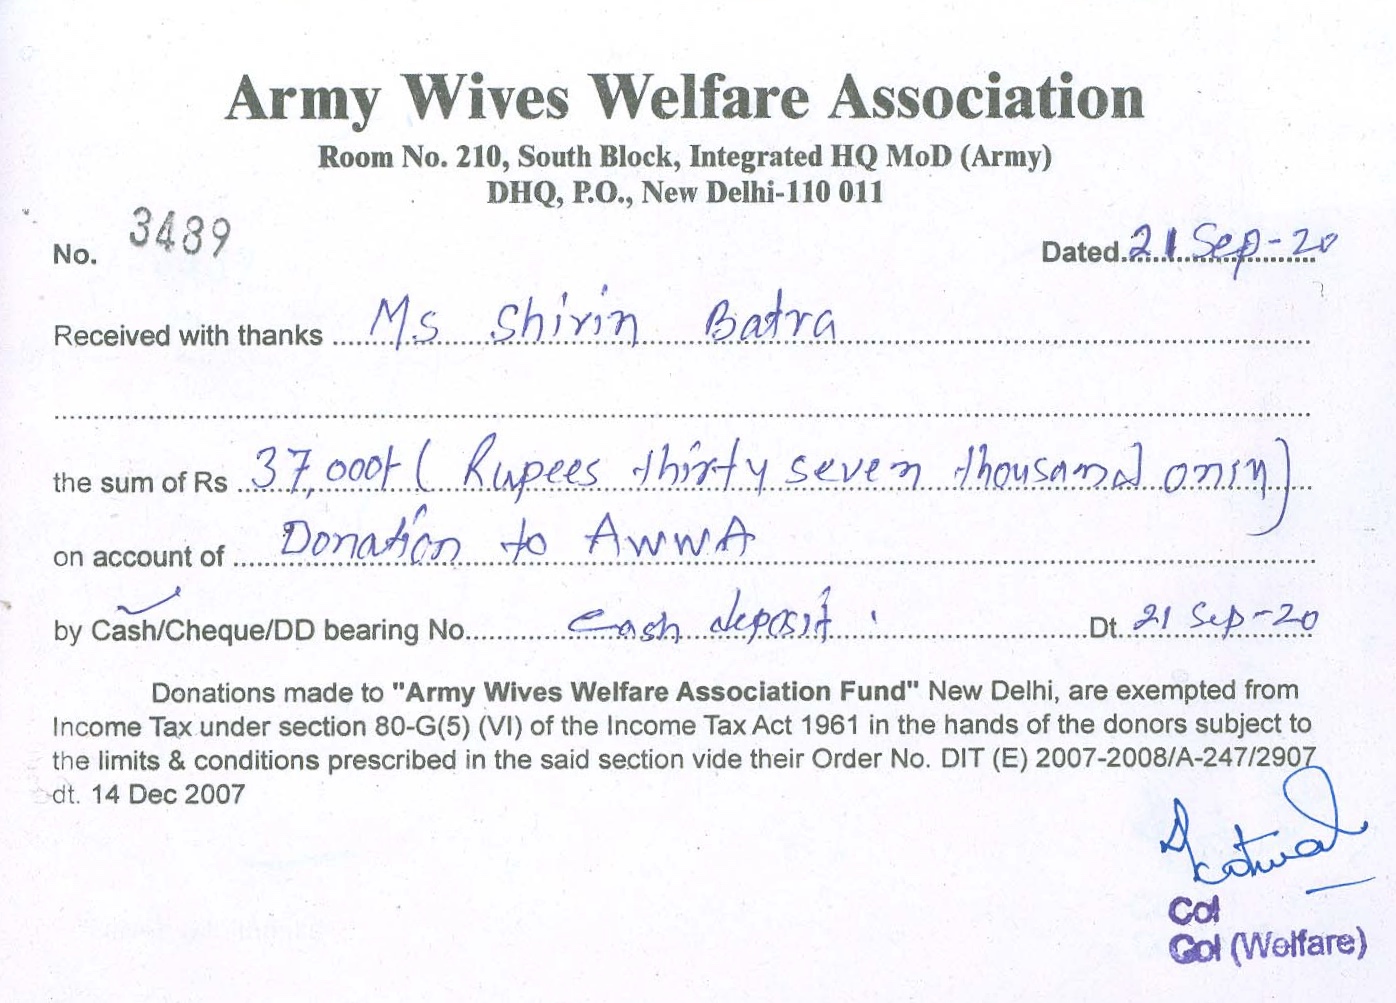 Army Wives Welfare Association
Room No. 210, South Block, Integrated HQ MoD (Army)
DHQ, P.O., New Delhi-110 011
No. 3489 Dated 21 Sep-20
Received with thanks Ms Shirin Batra
the sum of Rs 37,000/- ( Rupees thirty seven thousand only)
on account of Donation to AWWA
by Cash/Cheque/DD bearing No. Cash deposit. Dt. 21 Sep-20
Donations made to "Army Wives Welfare Association Fund" New Delhi, are exempted from
Income Tax under section 80-G(5) (VI) of the Income Tax Act 1961 in the hands of the donors subject to
the limits & conditions prescribed in the said section vide their Order No. DIT (E) 2007-2008/A-247/2907
dt. 14 Dec 2007
Col
Col (Welfare)